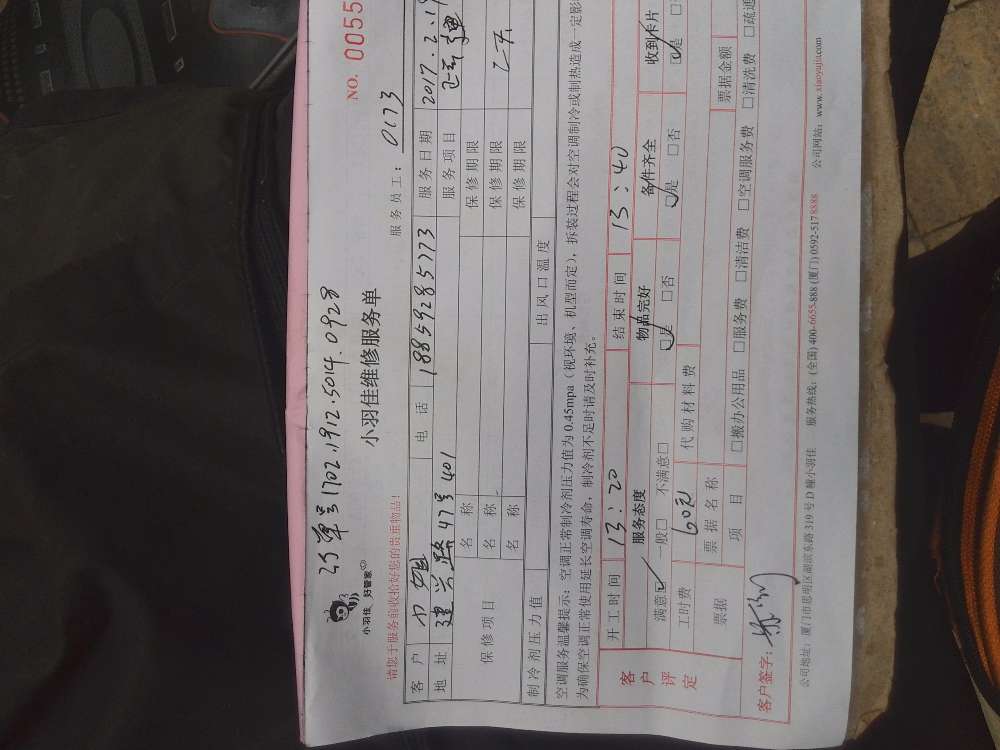 NO. 0055
订单号1702.1912.5014.0928
小羽佳 好管家
小羽佳维修服务单
请您于服务前收拾好您的贵重物品!
服务员工: 0173
客户 电话 18859285773 服务日期 2017.2.19
地址 建兴路47号401 服务项目
保修项目 名称 保修期限
名称 保修期限
名称 保修期限
制冷剂压力值 出风口温度
空调服务温馨提示:空调正常制冷剂压力值为 0.45mpa(视环境、机型而定),拆装过程会对空调制冷或制热造成一定影
为确保空调正常使用延长空调寿命,制冷剂不足时请及时补充。
客户评定
开工时间 13:20 结束时间 13:40
服务态度 物品完好 备件齐全 收到卡片
满意☑ 一般□ 不满意□ ☑是 □否 ☑是 □否 ☑是
工时费 60元 代购材料费
票据 票据名称 票据金额
项目 □搬办公用品 □服务费 □清洁费 □空调服务费 □清洗费 □疏通
客户签字:
公司地址:厦门市思明区湖滨东路 319 号 D 幢小羽佳 服务热线:(全国) 400-6655-888 (厦门) 0592-5178888 公司网站:www.xiaoyujia.com